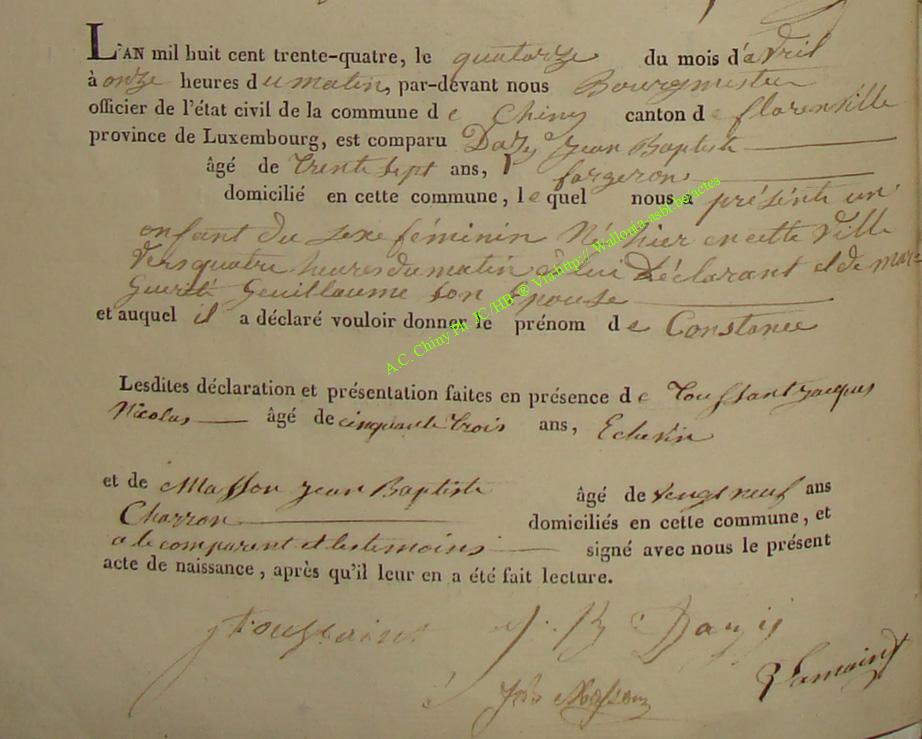 L'AN mil huit cent trente-quatre, le quatorze du mois d'avril
à onze heures du matin, par-devant nous Bourgmestre
officier de l'état civil de la commune de Chiny canton de florenville
province de Luxembourg, est comparu Dazy Jean Baptiste
âgé de trente sept ans, forgeron
domicilié en cette commune, lequel nous a présenté un
enfant du sexe féminin Né hier en cette Ville
vers quatre heures du matin de lui Déclarant et de Mar
gueritte Guillaume son épouse
et auquel il a déclaré vouloir donner le prénom de Constance
Lesdites déclaration et présentation faites en présence de Toussaint Jacques
Nicolas âgé de cinquante trois ans, Echevin
et de Masson Jean Baptiste âgé de vengt neuf ans
Charron domiciliés en cette commune, et
a le comparent et les temoins signé avec nous le présent
acte de naissance, après qu'il leur en a été fait lecture.
Toussaint J. B Dazy
Masson
A.C. Chiny Ph. JC/HB ® Via http:// Wallonia-asbl.be/actes